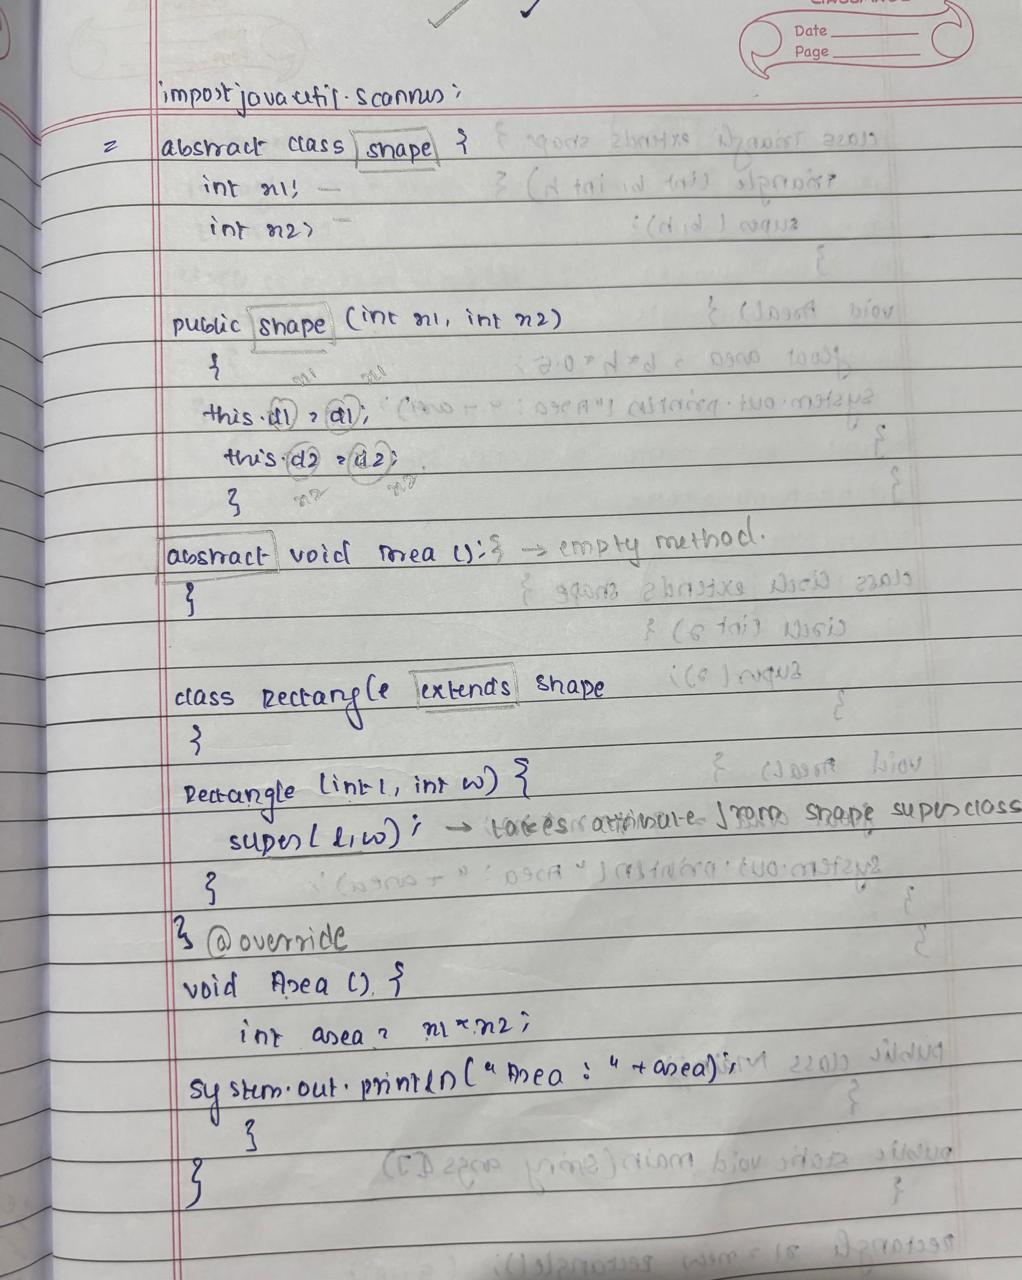 Date
Page
import java util. scanner;
2 abstract class shape {
int n1;
int n2;
public shape (int n1, int n2)
{
n1 n1
this.d1 = d1;
this.d2 = d2;
} n2 n2
abstract void Area (); } → empty method.
}
class Rectangle extends shape
}
Rectangle (int l, int w) {
super( l, w) ; → takes attribute from shape superclass
}
} @override
void Area () {
int area = n1 * n2 ;
system.out.println("Area : " + area);
}
}